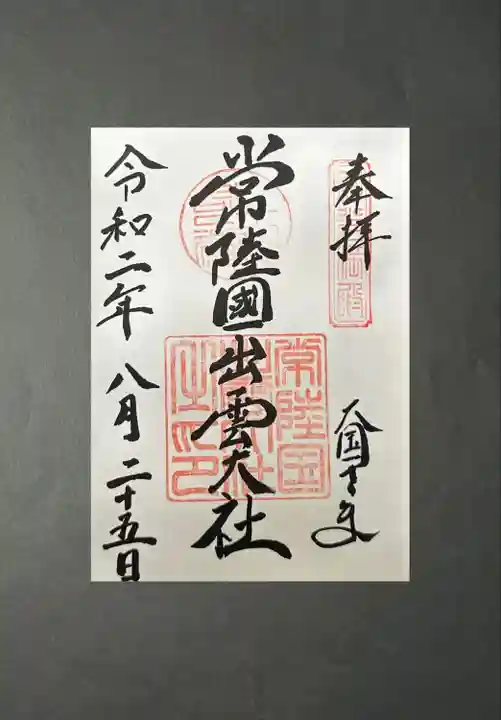 奉拝
大国さま
常陸國出雲大社
常陸国
出雲大社
之印
令和二年 八月 二十五日